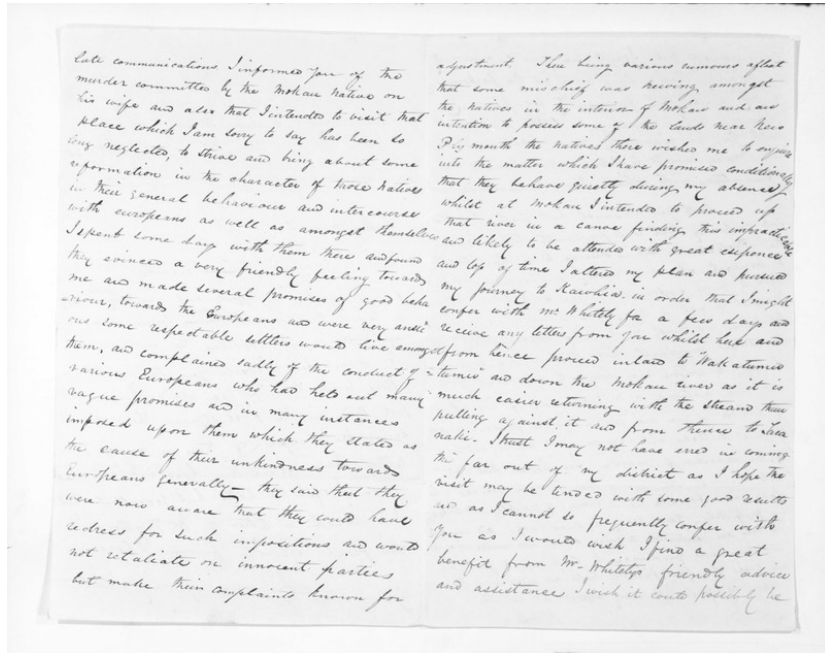 late communications I informed you of the
murder committed by the Mokau Native on
his wife and also that I intended to visit that
place which I am sorry to say has been so
long neglected, to strive and bring about some
reformation in the character of those natives
in their general behaviour and intercourse
with europeans as well as amongst themselves
I spent some days with them there and found
they evinced a very friendly feeling towards
me and made several promises of good beha
=viour, towards the Europeans and were very anxi
ous some respectable settlers would live amongst
them, and complained sadly of the conduct of
various Europeans who had held out many
vague promises and in many instances
imposed upon them which they stated as
the cause of their unkindness towards
Europeans generally – they said that they
were now aware that they could have
redress for such impositions and would
not retaliate on innocent parties
but make their complaints known for
adjustment. There being various rumours afloat
that some mischief was brewing amongst
the natives in the interior of Mokau and an
intention to possess some of the lands near New
Plymouth the natives there wished me to enquire
into the matter which I have promised conditionally
that they behave quietly during my absence,
whilst at Mokau I intended to proceed up
that river in a canoe finding this impracticable
and likely to be attended with great expence
and loss of time I altered my plan and pursued
my journey to Kawhia in order that I might
confer with Mr Whitely for a few days and
receive any letters from you whilst here and
from hence proceed inland to Wakatumu
tumu and down the Mokau river as it is
much easier returning with the stream than
pulling against it and from thence to Tara
naki. I trust I may not have erred in coming
thus far out of my district as I hope the
visit may be tended with some good results
and as I cannot so frequently confer with
you as I would wish I find a great
benefit from Mr Whitelys friendly advice
and assistance I wish it could possibly be